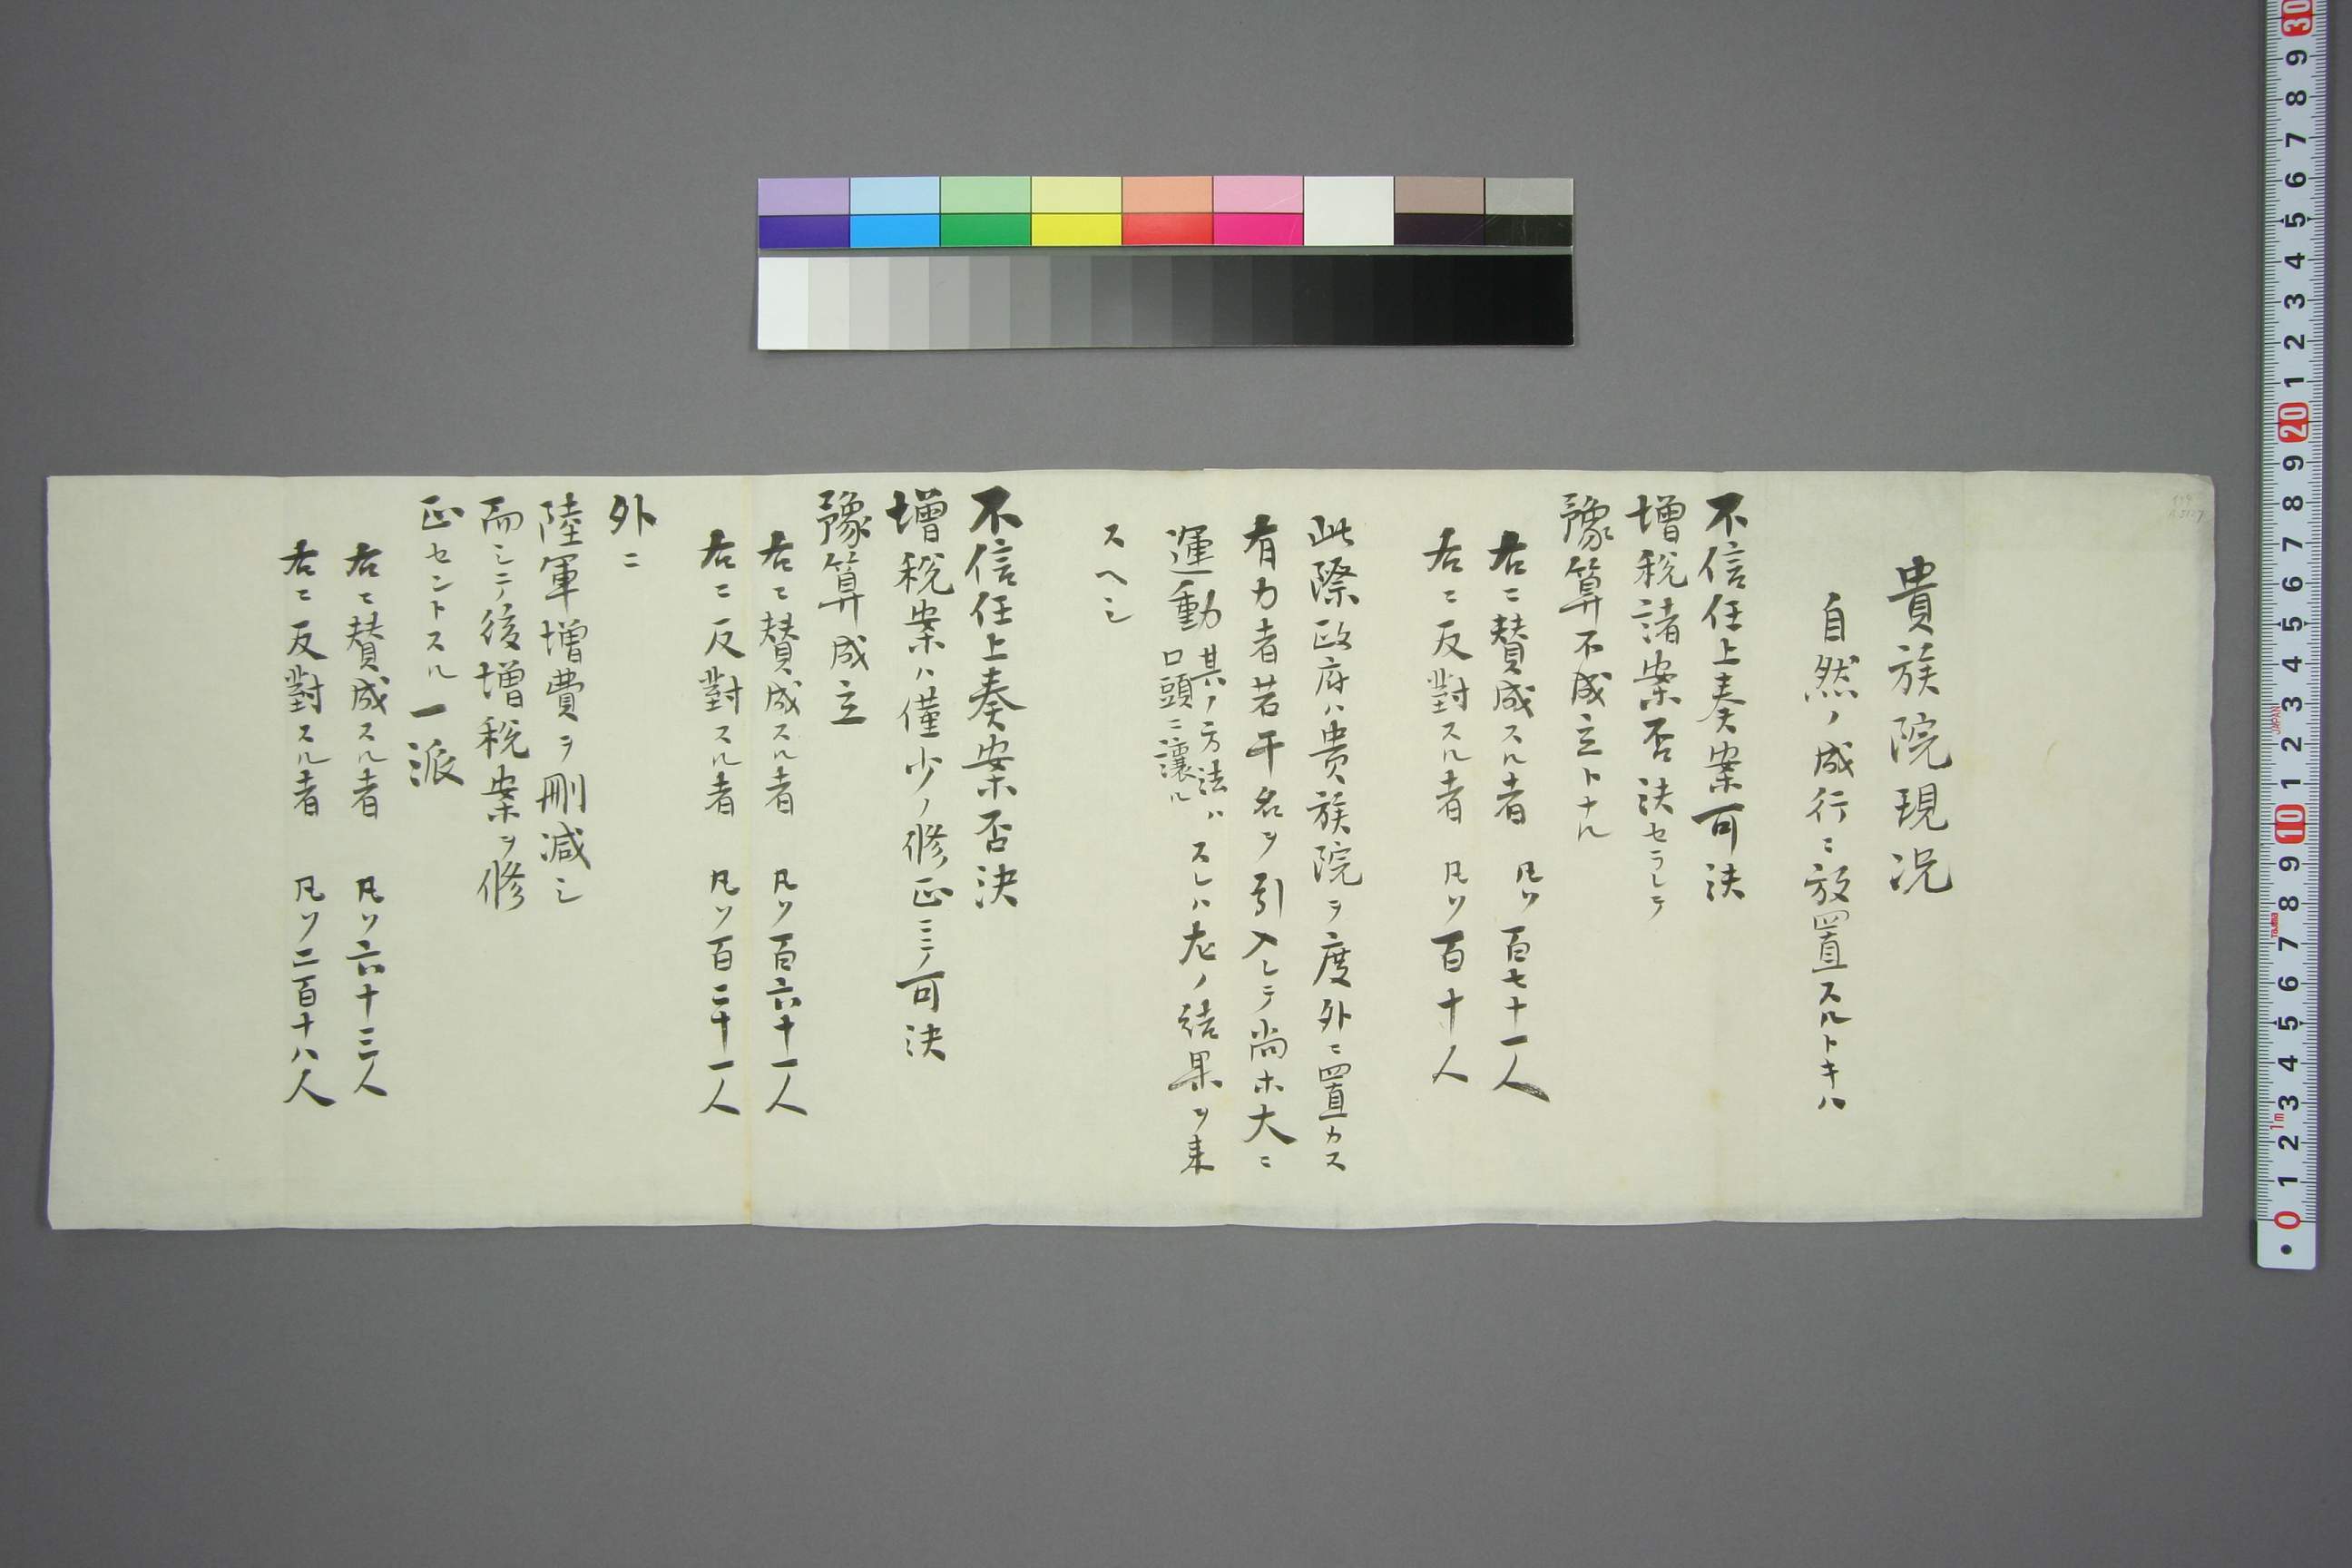 貴族院現況
自然ノ成行ニ放置スルトキハ
不信任上奏案可決
増税諸案否決セラレテ
豫算不成立トナル
右ニ賛成スル者 凡ソ百七十一人
右ニ反對スル者 凡ソ百十人
此際政府ハ貴族院ヲ度外ニ置カス
有力者若干名ヲ引入レテ尚ホ大ニ
運動其ノ方法ハ口頭ニ讓ルスレハ左ノ結果ヲ来
スヘシ
不信任上奏案否決
増税案ハ僅少ノ修正ニテ可決
豫算成立
右ニ賛成スル者 凡ソ百六十一人
右ニ反對スル者 凡ソ百二十一人
外ニ
陸軍増費ヲ刪減シ
而シテ後増税案ヲ修
正セントスル一派
右ニ賛成スル者 凡ソ六十三人
右ニ反對スル者 凡ソ二百十八人
0 1 2 3 4 5 6 7 8 9 10 1 2 3 4 5 6 7 8 9 20 1 2 3 4 5 6 7 8 9 30
1m
JAPAN